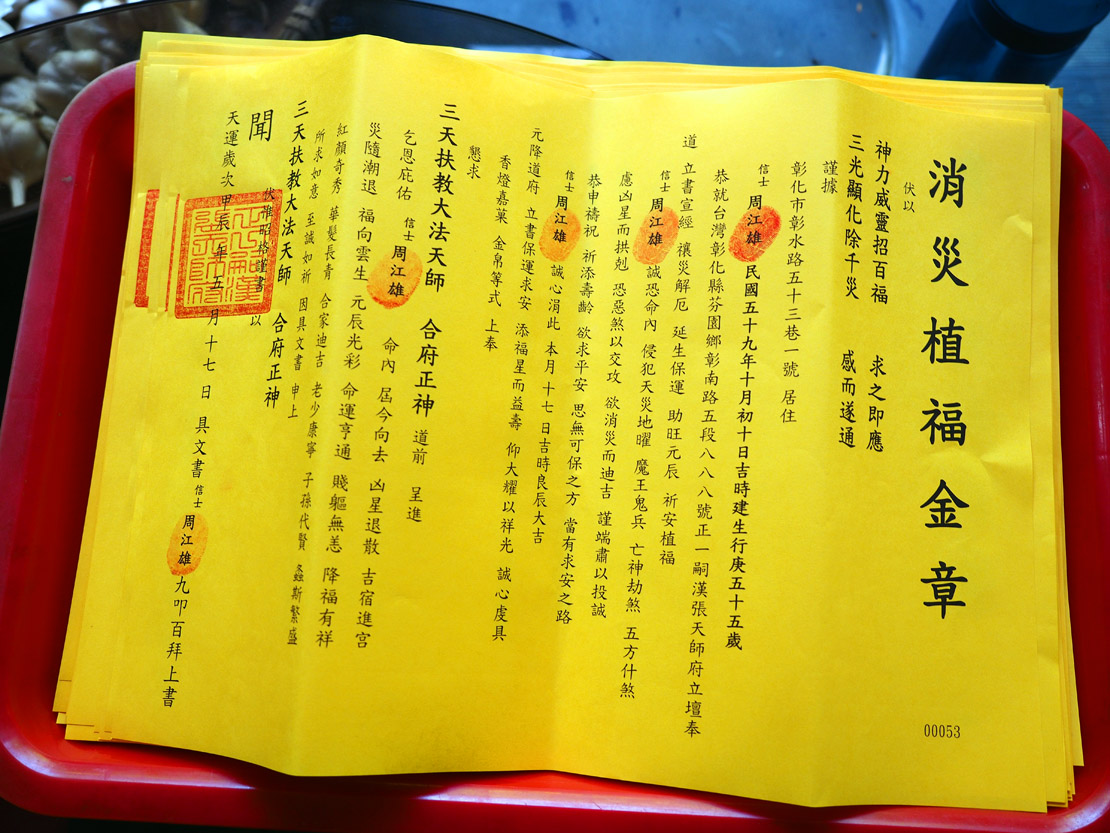 消災植福金章
伏以
神力威靈招百福 求之即應
三光顯化除千災 感而遂通
謹據
彰化市彰水路五十三巷一號 居住
信士 周江雄 民國五十九年十月初十日吉時建生行庚五十五歲
恭就台灣彰化縣芬園鄉彰南路五段八八八號正一嗣漢張天師府立壇奉
道 立書宣經 禳災解厄 延生保運 助旺元辰 祈安植福
信士 周江雄 誠恐命內 侵犯天災地曜 魔王鬼兵 亡神劫煞 五方什煞
慮凶星而拱剋 恐惡煞以交攻 欲消災而迪吉 謹端肅以投誠
恭申禱祝 祈添壽齡 欲求平安 思無可保之方 當有求安之路
信士 周江雄 誠心涓此 本月十七日吉時良辰大吉
元降道府 立書保運求安 添福星而益壽 仰大耀以祥光 誠心虔具
香燈嘉菓 金帛等式 上奉
懇求
三天扶教大法天師 合府正神 道前 呈進
乞恩庇佑 信士 周江雄 命內 屆今向去 凶星退散 吉宿進宮
災隨潮退 福向雲生 元辰光彩 命運亨通 賤軀無恙 降福有祥
紅顏奇秀 華髮長青 合家迪吉 老少康寧 子孫代賢 螽斯繁盛
所求如意 至誠如祈 因具文書 申上
三天扶教大法天師 合府正神
聞 伏惟昭格謹書 以
天運歲次甲辰年五月十七日 具文書 信士 周江雄 九叩百拜上書
00053